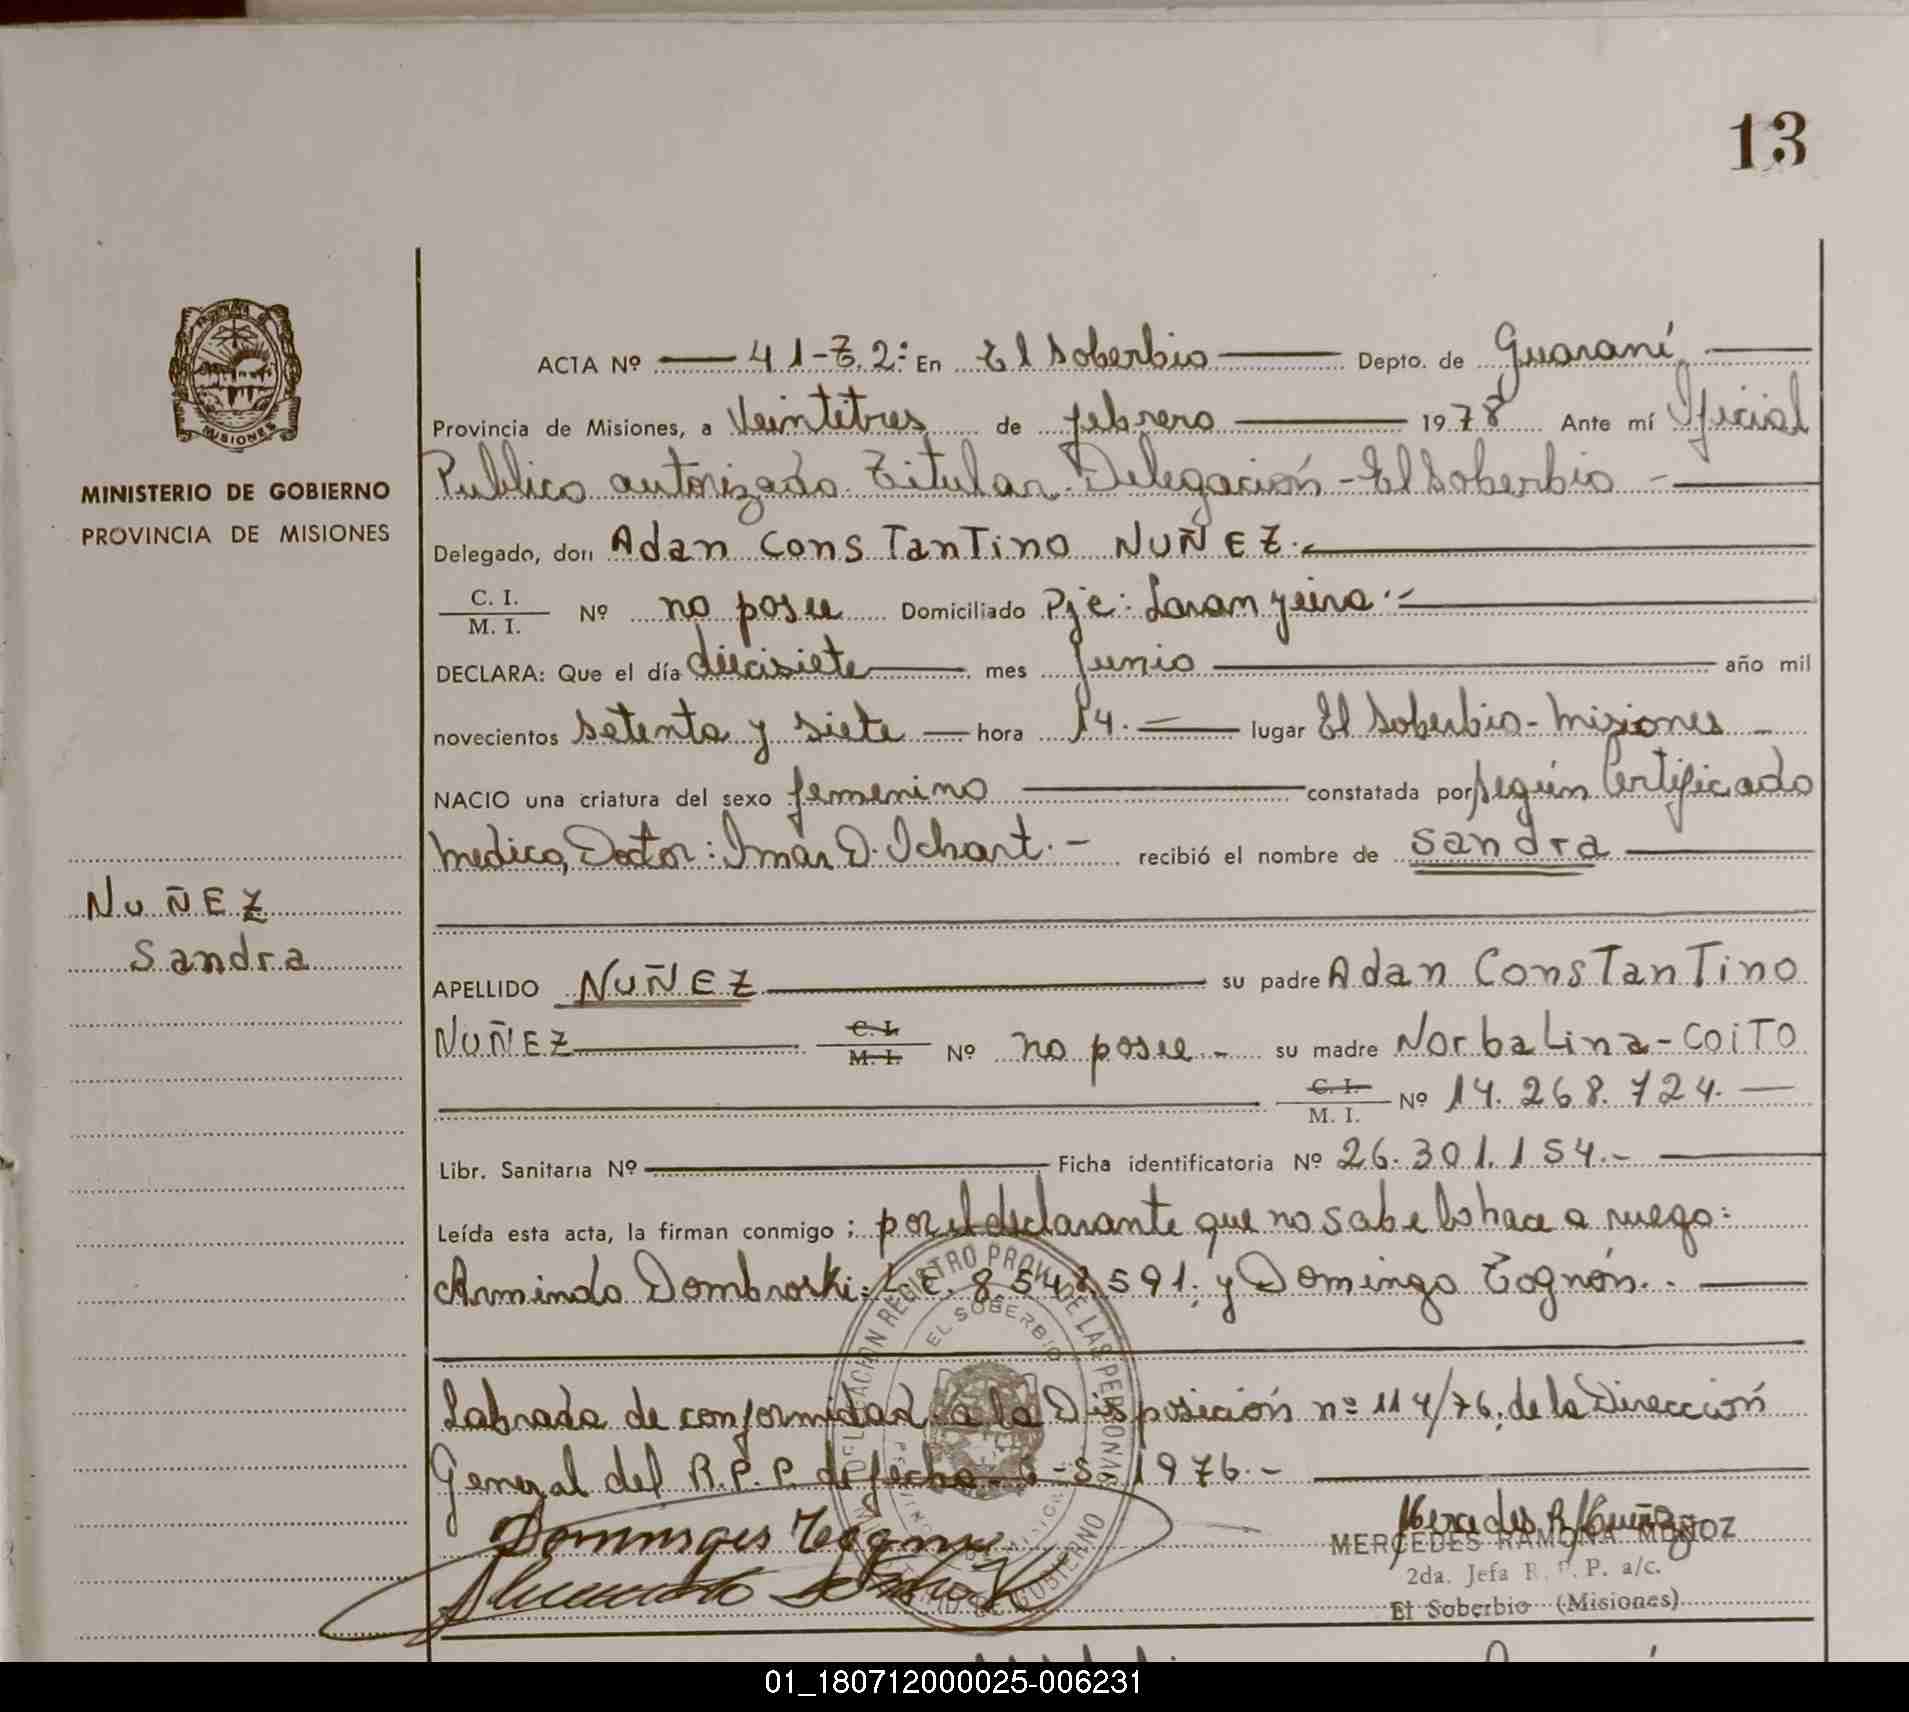 13
ACTA Nº 41-T.2: En El Soberbio Depto. de Guaraní
Provincia de Misiones, a Veintitres de febrero 1978 Ante mí Oficial
Publico autorizado Titular Delegación - El Soberbio -
MINISTERIO DE GOBIERNO
PROVINCIA DE MISIONES
Delegado, don Adan Constantino NUÑEZ.-
C. I.
M. I. Nº no posee Domiciliado Pje: Laramyeira.-
DECLARA: Que el día diecisiete mes Junio año mil
novecientos setenta y siete hora 14.- lugar El Soberbio - Misiones -
NACIO una criatura del sexo femenino constatada por según Certificado
medico, Doctor: Imar D. Ichart.- recibió el nombre de Sandra
NUÑEZ
Sandra
APELLIDO NUÑEZ su padre Adan Constantino
NUÑEZ C. I. M. I. Nº no posee - su madre Norbalina - COITO
C. I.
M. I. Nº 14.268.724.-
Libr. Sanitaria Nº Ficha identificatoria Nº 26.301.154.-
Leída esta acta, la firman conmigo ; por el declarante que no sabe lo hace a ruego:
Armindo Dombroski: L.E. 8.548.591; y Domingo Tognón.-
Labrada de conformidad a la Disposición nº 114/76, de la Dirección
General del R.P.P. de fecha 1976.-
DELEGACION REGISTRO PROV. DE LAS PERSONAS
EL SOBERBIO
MERCEDES RAMONA MUÑOZ
2da. Jefa R. P. P. a/c.
El Soberbio (Misiones)
01_180712000025-006231